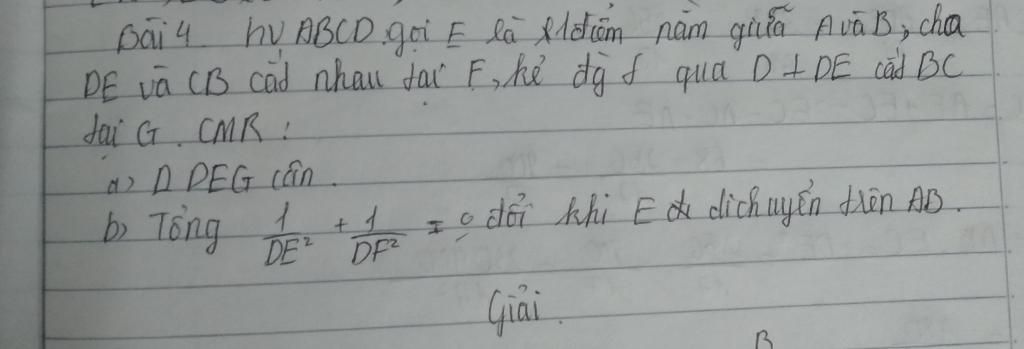 Bài 4 hv ABCD. gọi E là 1 điểm nằm giữa A và B, cho
DE và CB cắt nhau tại F, kẻ đg qua D ⊥ DE cắt BC
tại G. CMR:
a) Δ DEG cân.
b) Tổng 1/DE² + 1/DF² = đổi khi E di chuyển trên AB.
Giải.
B